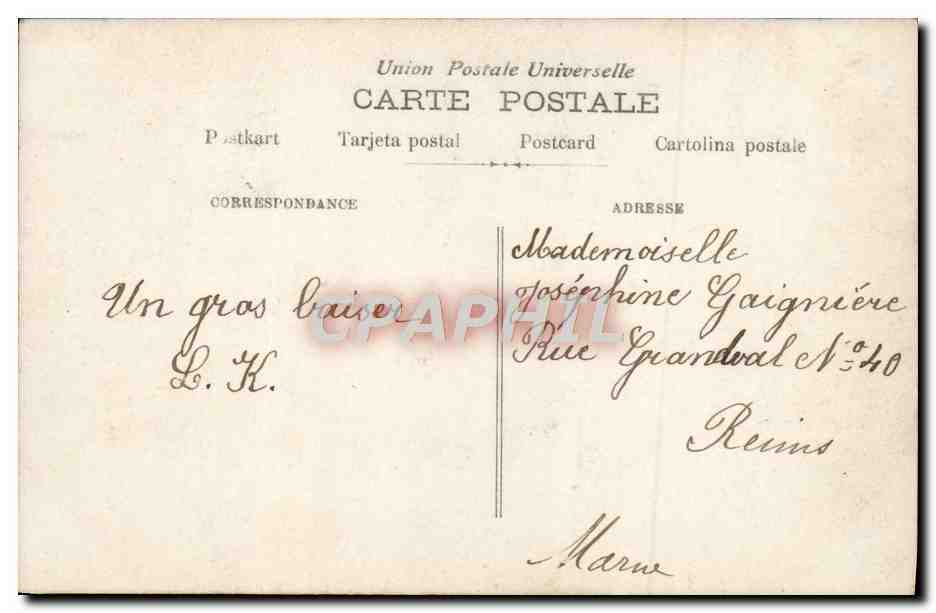 Union Postale Universelle
CARTE POSTALE
Postkart Tarjeta postal Postcard Cartolina postale
CORRESPONDANCE
ADRESSE
Un gros baiser
L. K.
Mademoiselle
Joséphine Gaignière
Rue Grandval No 40
Reims
Marne
CPAPHIL